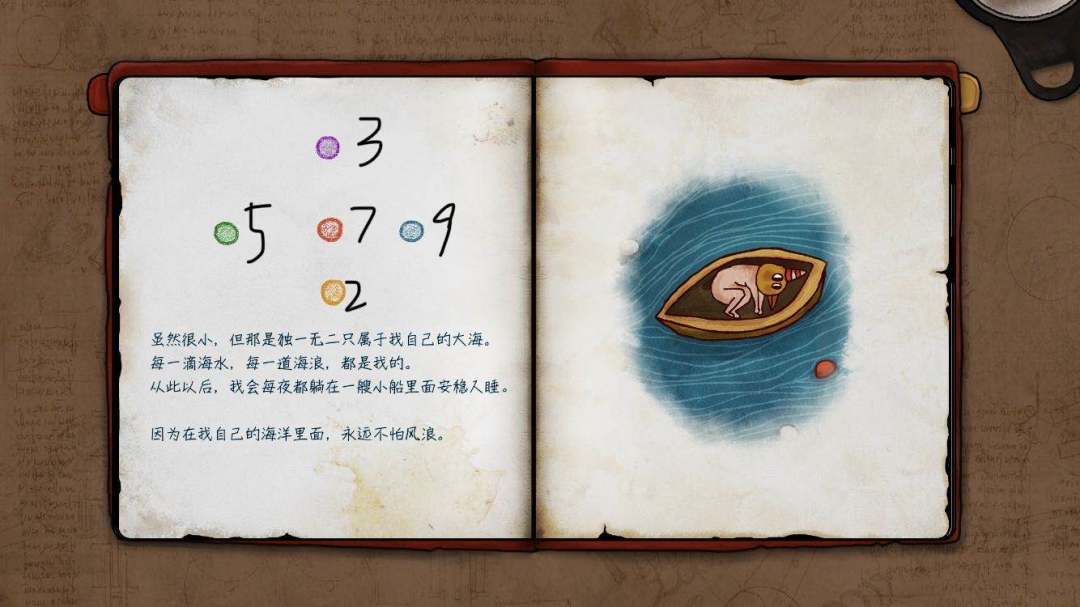 3
5 7 9
2
虽然很小，但那是独一无二只属于我自己的大海。
每一滴海水，每一道海浪，都是我的。
从此以后，我会每夜都躺在一艘小船里面安稳入睡。
因为在我自己的海洋里面，永远不怕风浪。